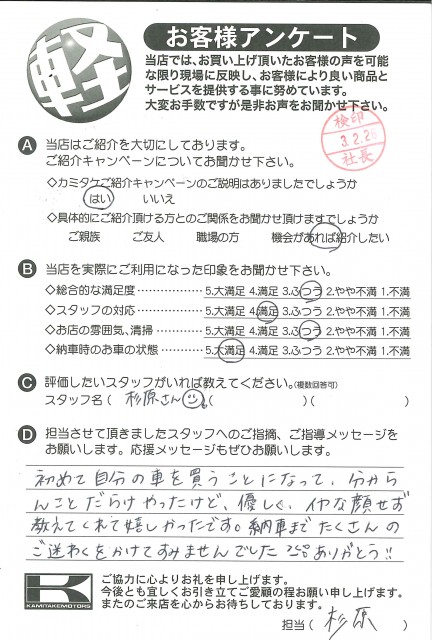 軽
お客様アンケート
当店では、お買い上げ頂いたお客様の声を可能
な限り現場に反映し、お客様により良い商品と
サービスを提供する事に努めています。
大変お手数ですが是非お声をお聞かせ下さい。
検印
3.2.26
社長
A 当店はご紹介を大切にしております。
ご紹介キャンペーンについてお聞かせ下さい。
◇カミタケご紹介キャンペーンのご説明はありましたでしょうか
はい いいえ
◇具体的にご紹介頂ける方とのご関係をお聞かせ頂けますでしょうか
ご親族 ご友人 職場の方 機会があれば紹介したい
B 当店を実際にご利用になった印象をお聞かせ下さい。
◇総合的な満足度 5.大満足 4.満足 3.ふつう 2.やや不満 1.不満
◇スタッフの対応 5.大満足 4.満足 3.ふつう 2.やや不満 1.不満
◇お店の雰囲気、清掃 5.大満足 4.満足 3.ふつう 2.やや不満 1.不満
◇納車時のお車の状態 5.大満足 4.満足 3.ふつう 2.やや不満 1.不満
C 評価したいスタッフがいれば教えてください。(複数回答可)
スタッフ名 ( 杉原さん )( )
D 担当させて頂きましたスタッフへのご指摘、ご指導メッセージを
お願いします。応援メッセージもぜひお願いします。
初めて自分の車を買うことになって、分から
んことだらけやったけど、優しく、イヤな顔せず
教えてくれて嬉しかったです。納車までたくさんの
ご迷わくをかけてすみませんでした ありがとう!!
K
KAMITAKEMOTORS
ご協力に心よりお礼を申し上げます。
今後とも宜しくお引き立てご愛顧の程お願い申し上げます。
またのご来店を心からお待ちしております。
担当 ( 杉原 )